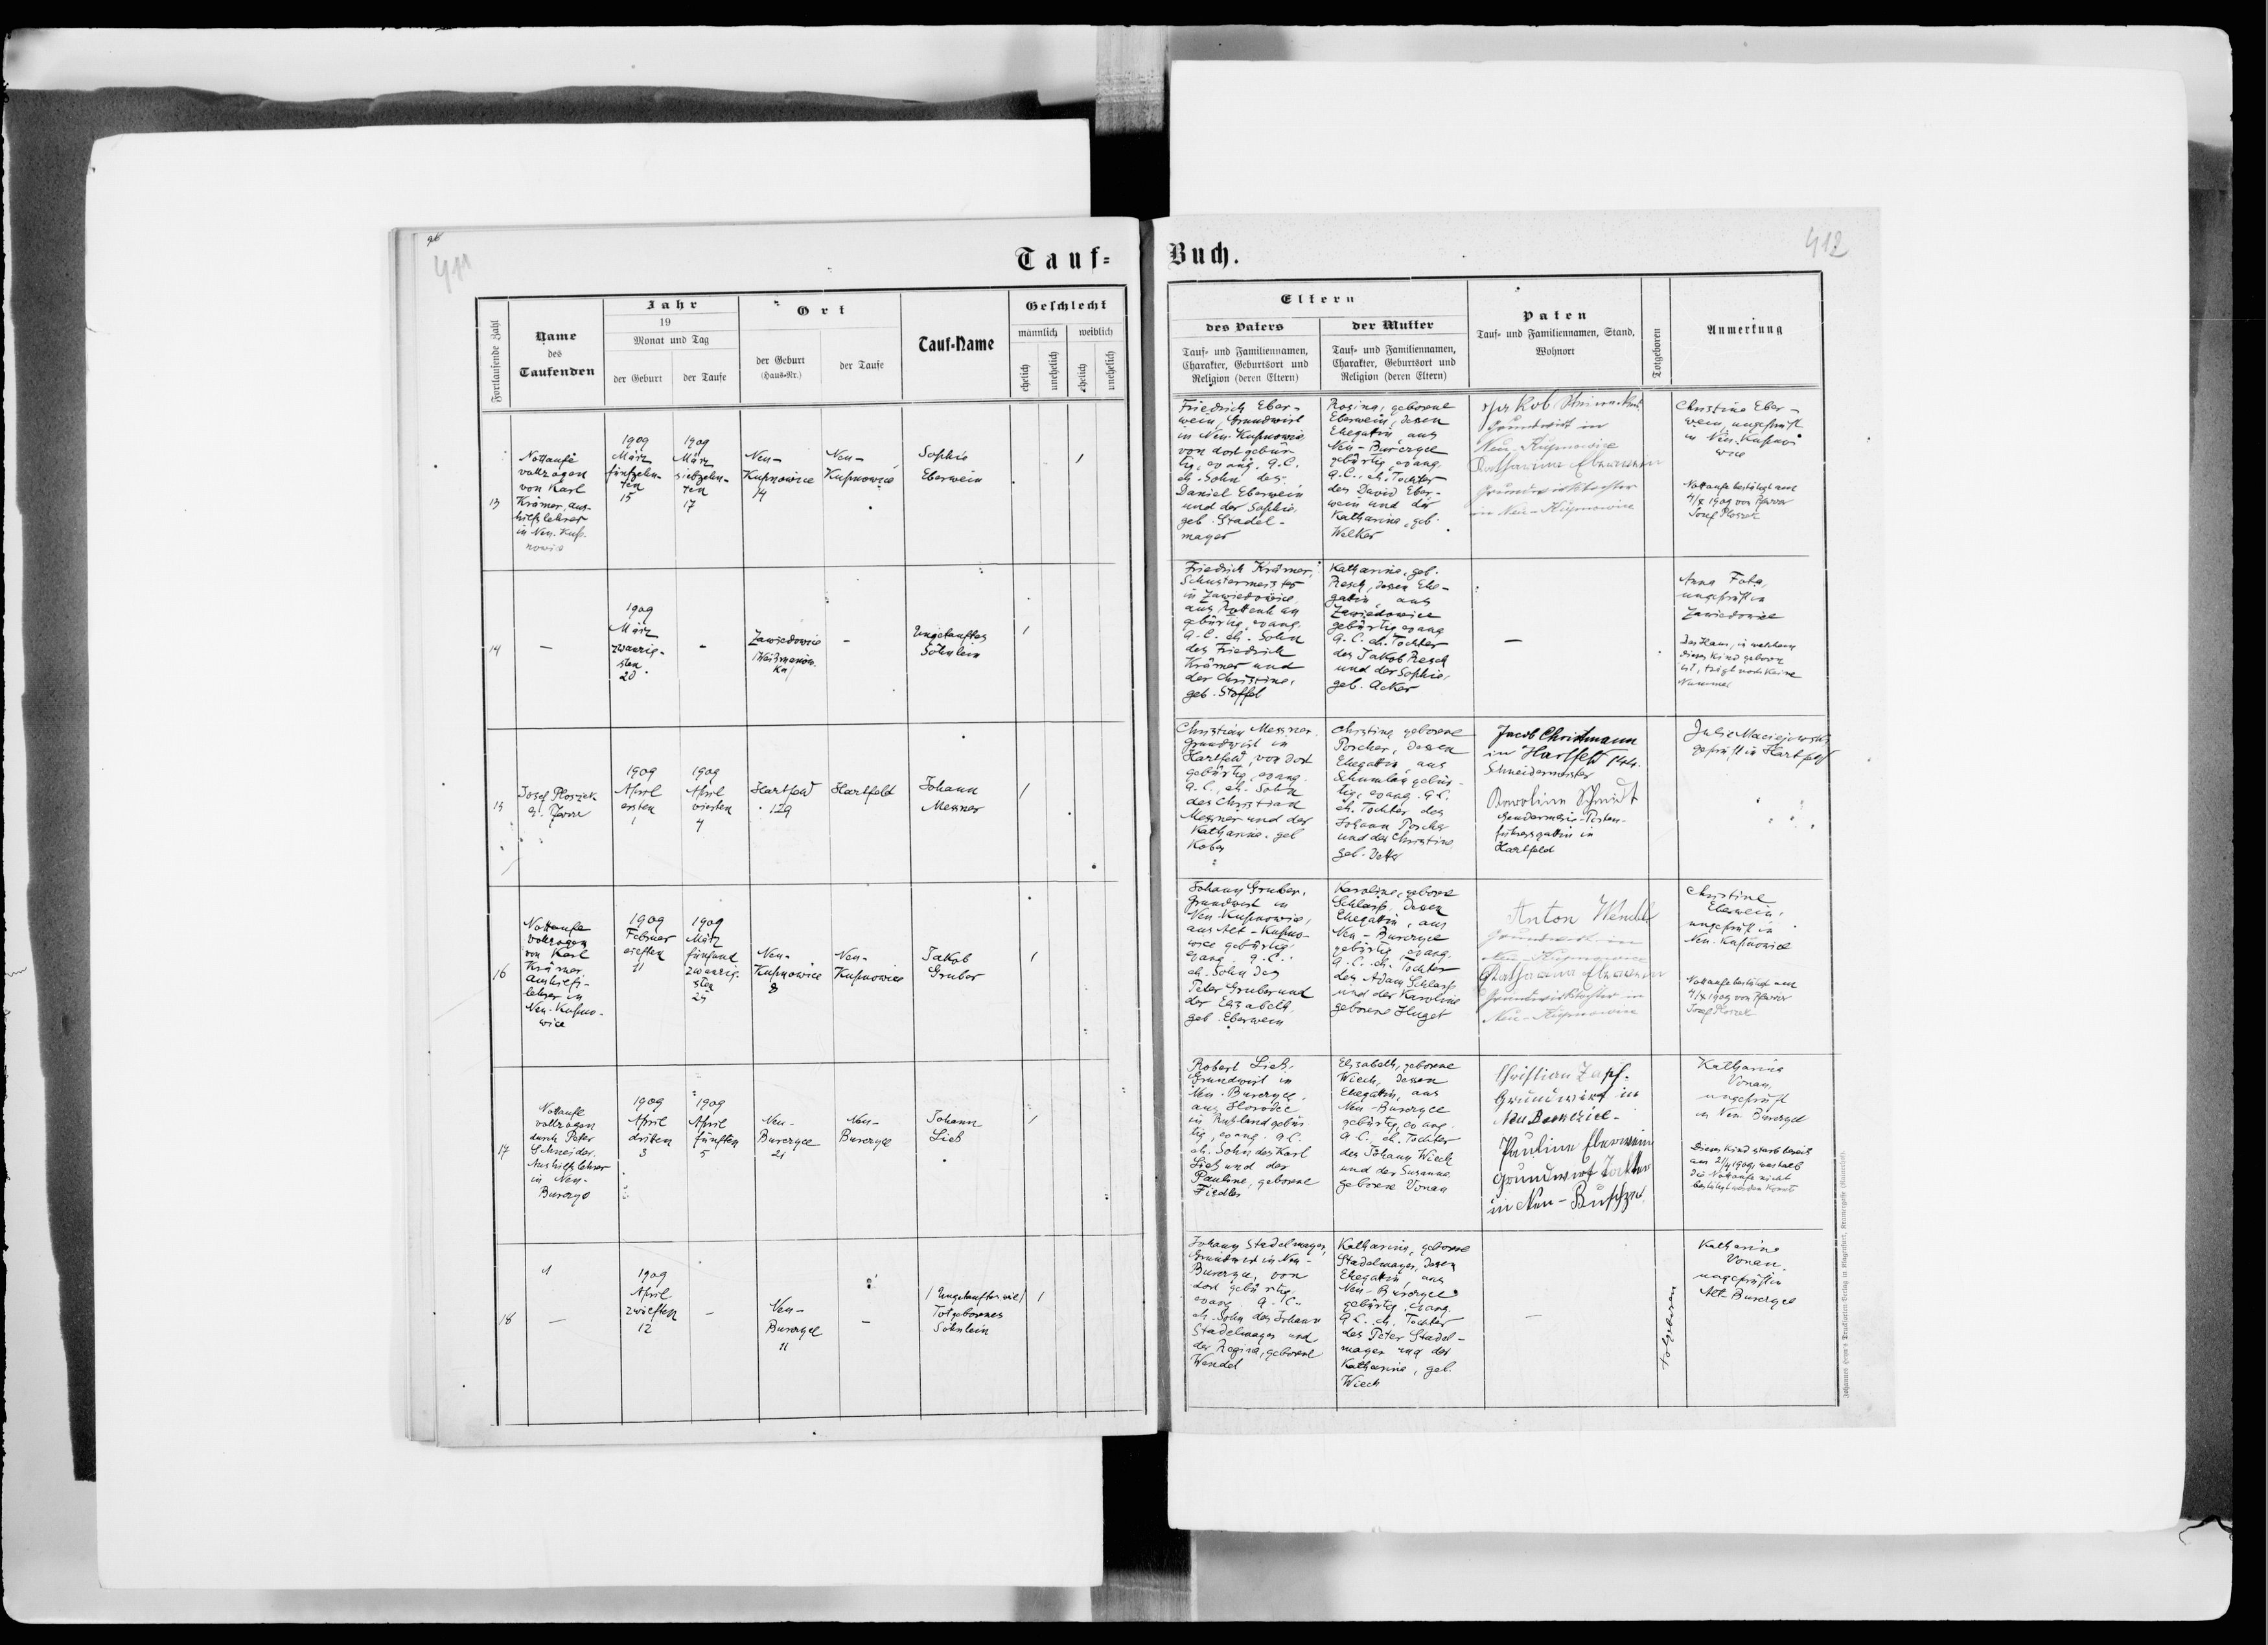 411
Tauf=
Fortlaufende Zahl
Name
des
Taufenden
Jahr
19
Monat und Tag
der Geburt
der Taufe
Ort
der Geburt
(Haus-Nr.)
der Taufe
Tauf-Name
Geschlecht
männlich
weiblich
ehelich
unehelich
ehelich
unehelich
13
Nottaufe
vollzogen
von Karl
Krämer, aus-
hilfslehrer
in Neu-Kup-
nowice
1909
März
fünfzehn-
ten
15
1909
März
siebzehn-
ten
17
Neu-
Kupnowice
14
Neu-
Kupnowice
Sophie
Eberwein
1
14
—
1909
März
zwanzig-
sten
20
-
Zawiedowice
-
Ungetauftes
Söhnlein
1
15
Josef Ploszek
ev. Pfarrer
1909
April
ersten
1
1909
April
vierten
4
Hartfeld
129
Hartfeld
Johann
Messner
1
16
Nottaufe
vollzogen
von Karl
Krämer
Aushilfs-
lehrer in
Neu-Kupno-
wice
1909
Februar
elften
11
1909
März
fünfund
zwanzig-
sten
25
Neu-
Kupnowice
8
Neu-
Kupnowice
Jakob
Gruber
1
17
Nottaufe
vollzogen
durch Peter
Schneider
Aushilfslehrer
in Neu-
1909
April
dritten
3
1909
April
fünften
5
Neu-
Burczyce
21
Neu-
Burczyce
Johann
Lieb
1
18
—
1909
April
zwölften
12
-
Neu-
Burczyce
11
-
Totgeborenes
Söhnlein
1
412
Buch.
Eltern
des Vaters
Tauf- und Familiennamen,
Charakter, Geburtsort und
Religion (deren Eltern)
der Mutter
Tauf- und Familiennamen,
Charakter, Geburtsort und
Religion (deren Eltern)
Paten
Tauf- und Familiennamen, Stand,
Wohnort
Totgeboren
Anmerkung
Friedrich Eber-
wein, Grundwirt
in Neu-Kupnowice
von dort gebür-
tig, evang. A.C.
eh. Sohn des
Daniel Eberwein
und der Sophie
geb. Stadel-
mayer
Rosina, geborene
Eberwein, dessen
Ehegattin, aus
Neu-Burczyce
gebürtig, evang.
A.C. eh. Tochter
des David Eber-
wein und der
Katharina, geb.
Welker
Jakob
Grundwirt in
Neu-Kupnowice
Katharina Eberwein
Grundwirtstochter
in Neu-Kupnowice
Christine Eber-
wein, ungeprüft
in Neu-Kupno
wice
Nottaufe bestätigt am
1909 von Pfarrer
Josef Ploszek
Friedrich Krämer,
Schustermeister
in Zawiedowice
aus
gebürtig, evang.
A.C. eh. Sohn
des Friedrich
Krämer und
der Christine,
geb. Stoffel
Katharina, geb.
Resch, dessen Ehe-
gattin, aus
Zawiedowice
gebürtig evang
A.C. eh. Tochter
des Jakob Resch
und der Sophie,
geb. Acker
—
Anna
ungeprüft in
Zawiedowice
Das Haus, in welchem
dieses Kind geboren
ist, trägt noch keine
Nummer
Christian Messner
Grundwirt in
Hartfeld, von dort
gebürtig, evang.
A.C., eh. Sohn
des Christian
Messner und der
Katharina, geb
Kober
Christina geborene
Porcher, dessen
Ehegattin, aus
Schumlau gebür-
tig, evang. A.C.
eh. Tochter des
Johann Porcher
und der Christine
geb. Vetter
Jacob Christmann
in Hartfeld 144.
Schneidermeister
Karoline Schmidt
Gendarmerie-Posten-
führersgattin in
Hartfeld
geprüft in Hartfeld
Johann Gruber,
Grundwirt in
Neu-Kupnowice,
aus Alt-Kupno-
wice gebürtig
evang. A.C.
eh. Sohn des
Peter Gruber und
der Elisabeth
geb. Eberwein
Karoline, geborene
Schlarp, dessen
Ehegattin, aus
Neu-Burczyce
gebürtig, evang.
A.C. eh. Tochter
des Adam Schlarp
und der Karoline
geborene Huget
Anton Wendel
Grundwirt in
Neu-Kupnowice
Katharina Eberwein
Grundwirtstochter in
Neu-Kupnowice
Christine
Eberwein,
ungeprüft in
Neu-Kupnowice
Nottaufe bestätigt am
1909 von Pfarrer
Josef Ploszek
Robert Lieb,
Grundwirt in
Neu-Burczyce,
aus
in Rußland gebür
tig, evang. A.C.
eh. Sohn des Karl
Lieb und der
Pauline, geborene
Fiedler
Elisabeth, geborene
Wiech, dessen
Ehegattin, aus
Neu-Burczyce
gebürtig, evang.
A.C. eh. Tochter
des Johann Wiech
und der Susanna
geborene Vonau
Christian Zapf.
Grundwirt in
Neu
Pauline Eberwein
Grundwirt Tochter
in Neu-
Katharina
Vonau,
ungeprüft
in Neu Burczyce
Dieses Kind starb bereits
am 1909, weshalb
die Nottaufe nicht
bestätigt werden konnte
Johann Stadelmayer,
Grundwirt in Neu-
Burczyce, von
dort gebürtig
evang A.C.
eh. Sohn des Johann
Stadelmayer und
der Regina, geborene
Wendel
Katharina, geborene
Stadelmayer, dessen
Ehegattin, aus
Neu-Burczyce
gebürtig, evang.
A.C. eh. Tochter
des Peter Stadel-
mayer und der
Katharina, geb.
Wiech
—
totgeboren
Katharina
Vonau,
ungeprüft in
Alt-Burczyce